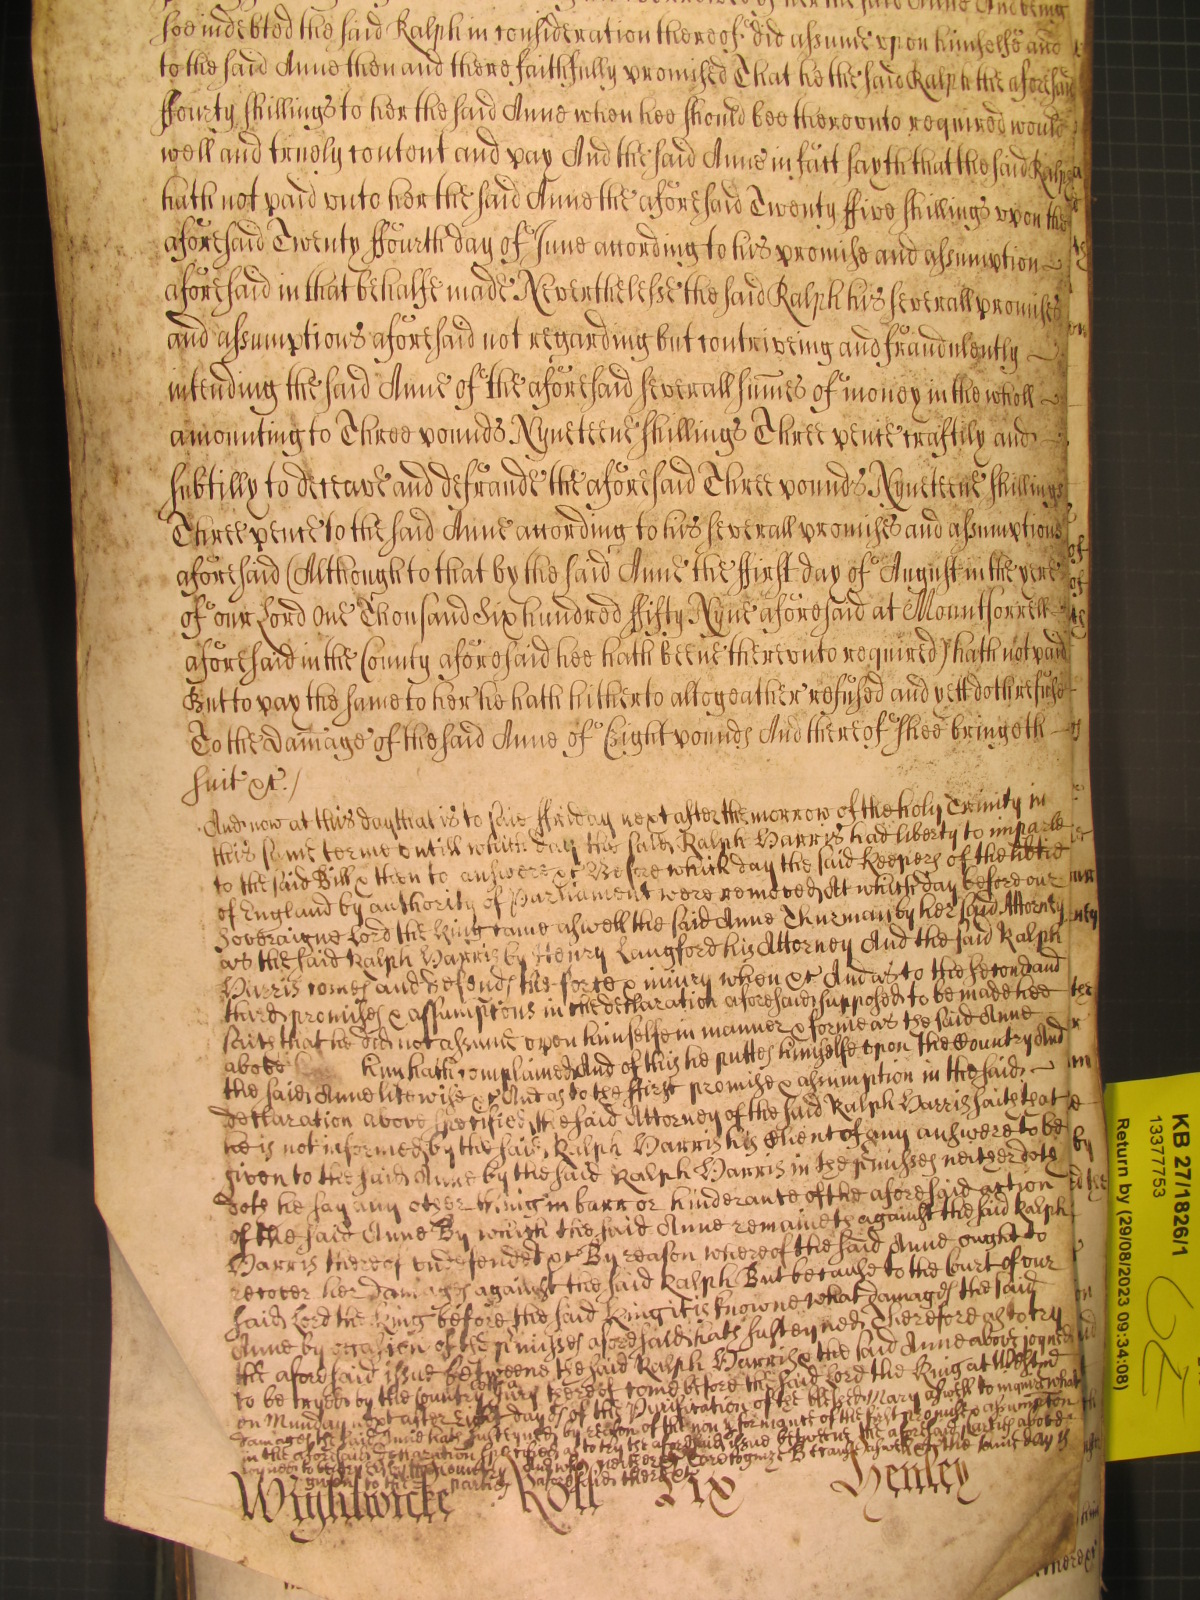 soe indebted the said Ralph in consideration thereof did assume upon himselfe and
to the said Anne then and there faithfully promised That he the said Ralph the aforesaid
ffourty shillings to her the said Anne when hee should bee thereunto required would
well and truely content and pay And the said Anne in fact sayth that the said Ralph
hath not paid unto her the said Anne the aforesaid Twenty ffive shillings upon the
aforesaid Twenty ffourth day of June according to his promise and assumption
aforesaid in that behalfe made Neverthelesse the said Ralph his severall promises
and assumptions aforesaid not regarding but contriveing and fraudulently
intending the said Anne of the aforesaid severall sumes of money in the wholl
amounting to Three pounds Nyneteene shillings Three pence craftily and
subtilly to deceave and defraude the aforesaid Three pounds Nyneteene shillings
Three pence to the said Anne according to his severall promises and assumptions
aforesaid (Although to that by the said Anne the ffirst day of August in the yere
of our Lord One Thousand Six hundred ffifty Nyne aforesaid at Mountsorrell
aforesaid in the County aforesaid hee hath beene thereunto required) hath not paid
But to pay the same to her he hath hitherto altogeather refused and yett doth refuse
To the damage of the said Anne of Eight pounds And thereof shee bringeth
suit &c./
And now at this day that is to saie ffriday next after the morrow of the holy Trinity in
this same terme untill which day the said Ralph Harris had liberty to imparle
to the said Bill & then to answere &c Before which day the said Keepers of the libtie
of England by authority of Parliament were removed At which day before our
Soveraigne Lord the King came aswell the said Anne Thurman by her said Attorney
as the said Ralph Harris by Henry Langford his Attorney And the said Ralph
Harris comes and defends the force & iniury when &c And as to the second and
third promises & assumptions in the declaration aforesaid supposed to be made hee
saith that he did not assume upon himselfe in manner & forme as the said Anne
above him hath complained And of this he puttes himselfe upon the Country And
the said Anne likewise &c And as to the ffirst promise & assumption in the said
declaration above specified the said Attorney of the said Ralph Harris saith that
he is not informed by the said Ralph Harris his Client of any answere to be
given to the said Anne by the said Ralph Harris in the p'misses neither doth
doth he say any other thing in barr or hinderance of the aforesaid action
of the said Anne By which the said Anne remaineth against the said Ralph
Harris thereof undefended &c By reason whereof the said Anne ought to
recover her damages against the said Ralph But because to the Court of our
said Lord the King before the said King it is knowne what damages the said
Anne by occasion of the p'misses aforesaid hath susteyned Therefore as to try
the aforesaid issue betweene the said Ralph Harris & the said Anne above joyned
to be tryed by the Country lett a Jury thereof come before the said Lord the King at Westm
on Munday next after Eight dayes of the Purification of the blessed Mary aswell to inquire what
damages the said Anne hath susteyned by reason of the non p'formance of the first promise & assumption
in the aforesaid declaration specified as to try the aforesaid issue betweene the aforesaid parties above
joyned to be tryed by the Country And who neither &c to recognize &c Because aswell &c the same day is
given to the parties aforesaid there &c
Wightwicke Roll Xix Henley
KB 27/1826/1
13377753
Return by (29/08/2023 09:34:08)